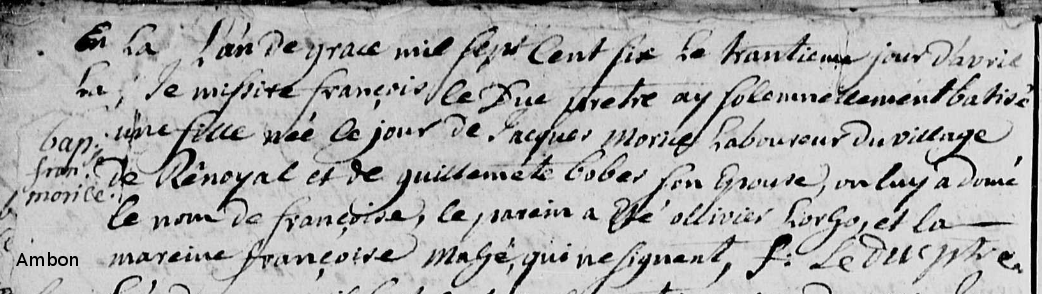 En La L'an de grace mil sept Cent six Le trantieme jour d'avril
La, Je missire françois le Duc pretre ay solemnellement batisé
une fille née le jour de Jacques morice Laboureur du village
de Kénoyal et de guillemete bober son Epouse, on luy a doné
le nom de françoise, le parein a été ollivier Lorho, et la
mareine françoise Mahé, qui ne signent, f: Le duc ptre.
bap:
fran:
morice
Ambon